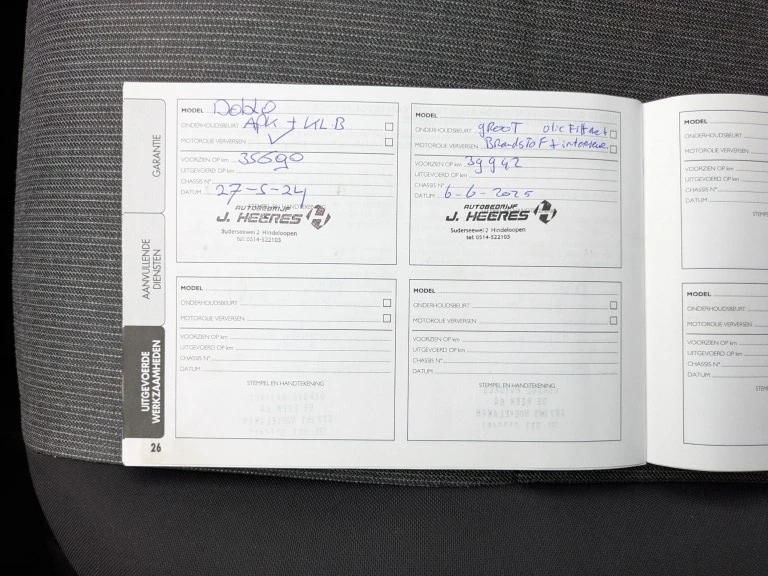 GARANTIE
AANVULLENDE
DIENSTEN
UITGEVOERDE
WERKZAAMHEDEN
26
MODEL Doblo
ONDERHOUDSBEURT APK + KL.B
MOTOROLIE VERVERSEN
VOORZIEN OP km 35690
UITGEVOERD OP km
CHASSIS N°
DATUM 27-5-24
STEMPEL EN HANDTEKENING
AUTOBEDRIJF
J. HEERES
Suderseewei 2 Hindeloopen
tel: 0514-522103
MODEL
ONDERHOUDSBEURT gROOT olie Filter +
MOTOROLIE VERVERSEN BrandstoF + interieur
VOORZIEN OP km 39942
UITGEVOERD OP km
CHASSIS N°
DATUM 6-6-2025
AUTOBEDRIJF
J. HEERES
Suderseewei 2 Hindeloopen
tel: 0514-522103
MODEL
ONDERHOUDSBEURT
MOTOROLIE VERVERSEN
VOORZIEN OP km
UITGEVOERD OP km
CHASSIS N°
DATUM
STEMPEL EN HANDTEKENING
MODEL
ONDERHOUDSBEURT
MOTOROLIE VERVERSEN
VOORZIEN OP km
UITGEVOERD OP km
CHASSIS N°
DATUM
STEMPEL EN HANDTEKENING
MODEL
ONDERHOUDSBEURT
MOTOROLIE VERVERSEN
VOORZIEN OP km
UITGEVOERD OP km
CHASSIS N°
DATUM
MODEL
ONDERHOUDSBEURT
MOTOROLIE VERVERSEN
VOORZIEN OP km
UITGEVOERD OP km
CHASSIS N°
DATUM